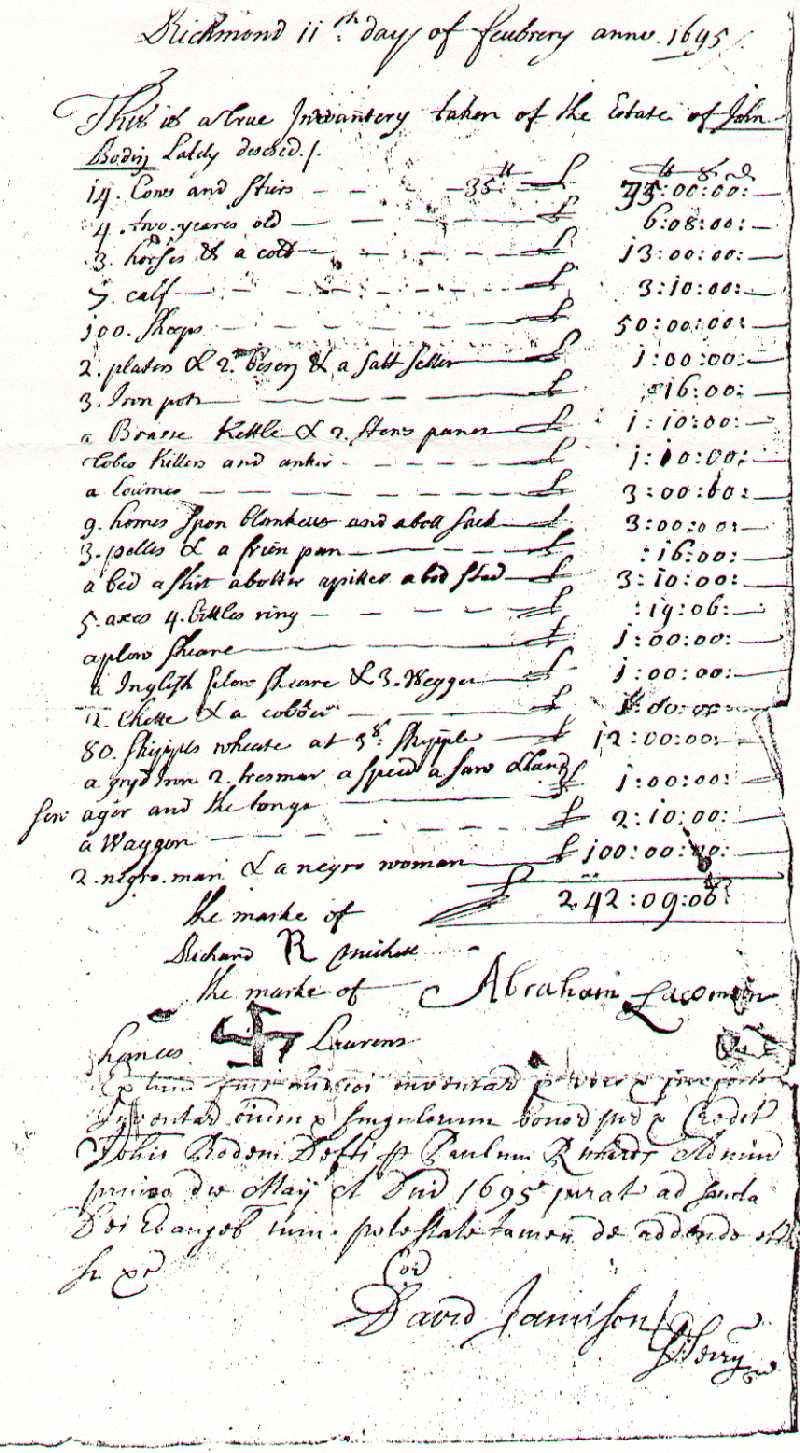 Richmond 11th day of feubrery anno 1695/
This is a true Inventery taken of the Estate of John
Bodin Latly desesed /
14. Cowes and stiers 35
35:00:00:
4. two yeares old £ 6:08:00:
3. horses & a cold £ 13:00:00:
7. calf £ 3:10:00:
100. sheeps £ 50:00:00:
2. plates & 2. beson & a salt seller £ 1:00:00:
3. Iron pots £ :16:00:
a Brasse Kettle & 2. panes £ 1:10:00:
tobes Killers and anker £ 1:10:00:
a loumes £ 3:00:00:
9. homes spon blankeus and a sack £ 3:00:00:
3. pelles & a frien pan £ :16:00:
a bed a shirt a bolster a piller a bed sted £ 3:10:00:
5. axes 4. bettles ring £ :19:06:
a plow sheare £ 1:00:00:
a Inglish plow sheare & 3. Wegges £ 1:00:00:
2. Cheste & a cobber £ 1:00:00:
80. skipples wheate at 3s. skipple £ 12:00:00:
a gryd Iron 2. a sped a saw & hand £ 1:00:00:
ager and the tongs
a Waygon £ 2:10:00:
2. negro. man & a negro woman £ 100:00:00:
the marke of £ 242:09:06
Richard R Michell
the marke of Abraham Lacomon
hances Laurens
Inventar eiusd & singulorum bonor jud & Credit
Johis Bodeni Defti p Paulum Richards Admin
primo die May A Dni 1695 jurat ad sancta
Dei Evangel cum potestate tamen de addendo etc
si &c
Cor
David Jamison